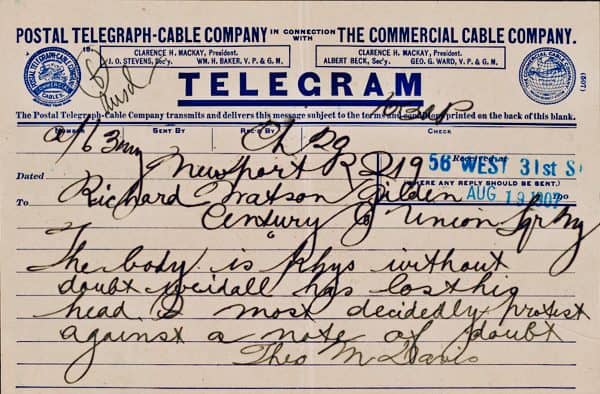 POSTAL TELEGRAPH-CABLE COMPANY IN CONNECTION WITH THE COMMERCIAL CABLE COMPANY.
CLARENCE H. MACKAY, President.
J. O. STEVENS, Sec'y. WM. H. BAKER, V. P. & G. M.
CLARENCE H. MACKAY, President.
ALBERT BECK, Sec'y. GEO. G. WARD, V. P. & G. M.
POSTAL TELEGRAPH-CABLE COMPANY
COMMERCIAL CABLES
TELEGRAM
The Postal Telegraph-Cable Company transmits and delivers this message subject to the terms and conditions printed on the back of this blank.
NUMBER SENT BY REC'D BY CHECK
Received at
56 WEST 31st S
Dated Newport R I 19
(WHERE ANY REPLY SHOULD BE SENT.)
AUG 19 1907
To Richard Watson Gilder
Century Co Union Sqr Ny
The body is Khys without
doubt weidall has lost his
head I most decidedly protest
against a note of doubt
Theo M Davis